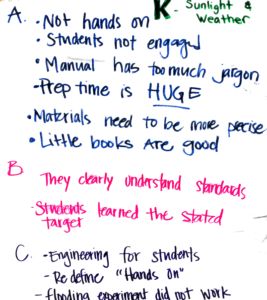 K - Sunlight &
Weather
A. • Not hands on
• Students not engaged
• Manual has too much jargon
- Prep time is HUGE
• Materials need to be more precise
• Little books are good
B They clearly understand standards
- Students learned the stated
target
C. - Engineering for students
- Redefine "Hands on"
- flooding experiment did not work